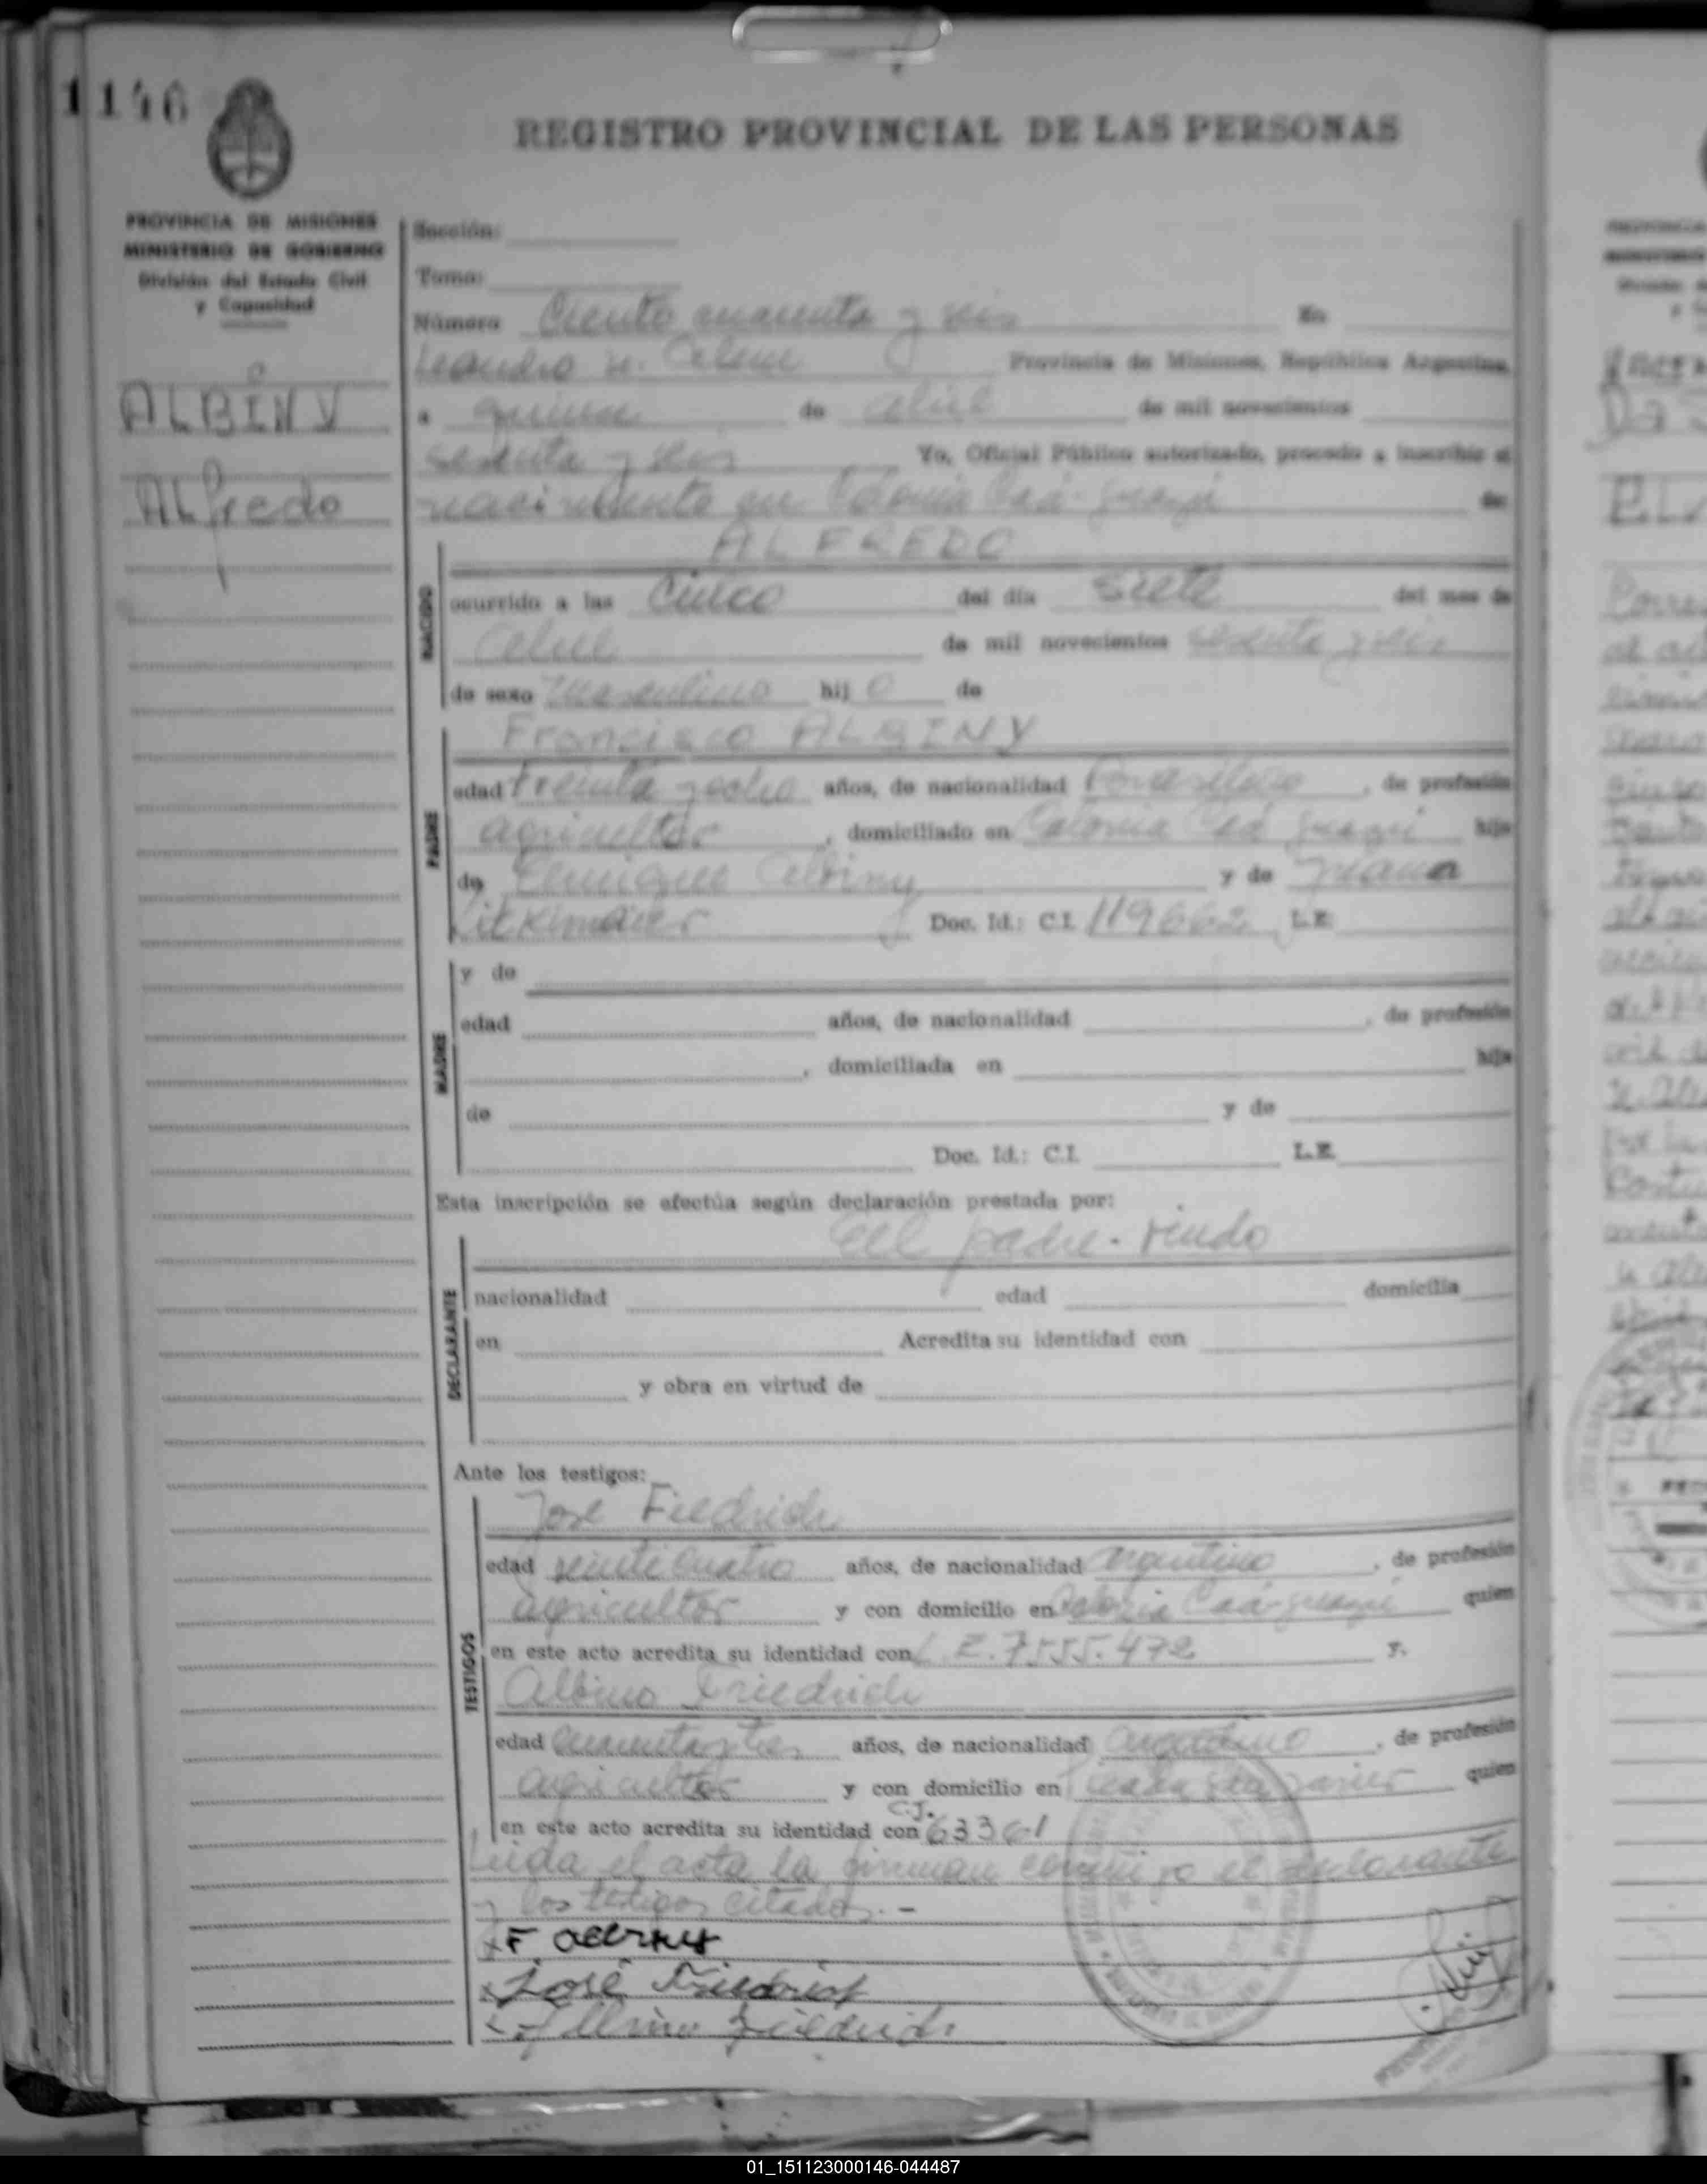 1146
REGISTRO PROVINCIAL DE LAS PERSONAS
PROVINCIA DE MISIONES
MINISTERIO DE GOBIERNO
División del Estado Civil
y Capacidad
ALBINY
Alfredo
Sección:
Tomo:
Número Ciento cuarenta y seis En
Leandro N. Alem Provincia de Misiones, República Argentina,
a quince de abril de mil novecientos
sesenta y seis Yo, Oficial Público autorizado, procedo a inscribir el
nacimiento en Colonia Caá-guazú de:
ALFREDO
NACIDO
ocurrido a las Cinco del día siete del mes de
abril de mil novecientos sesenta y seis
de sexo masculino hijo de
Francisco ALBINY
PADRE
edad treinta y ocho años, de nacionalidad brasilero, de profesión
agricultor, domiciliado en Colonia Caá guazú hijo
de Enrique Albiny y de Juana
Doc. Id.: C.I. 119662 L.E.
MADRE
y de
edad años, de nacionalidad , de profesión
, domiciliada en hija
de y de
Doc. Id.: C.I. L.E.
Esta inscripción se efectúa según declaración prestada por:
El padre. viudo
DECLARANTE
nacionalidad edad domicilia
en Acredita su identidad con
y obra en virtud de
Ante los testigos:
José Friedrich
TESTIGOS
edad veinticuatro años, de nacionalidad argentino, de profesión
agricultor y con domicilio en Colonia Caá-guazú quien
en este acto acredita su identidad con L.E. 7555.472 y.
Albino Friedrich
edad cuarenta y tres años, de nacionalidad argentino, de profesión
agricultor y con domicilio en quien
en este acto acredita su identidad con C.I. 63361
Leída el acta la firman conmigo el declarante
y los testigos citados.-
x F Albiny
x José Friedrich
x Albino Friedrich
01_151123000146-044487